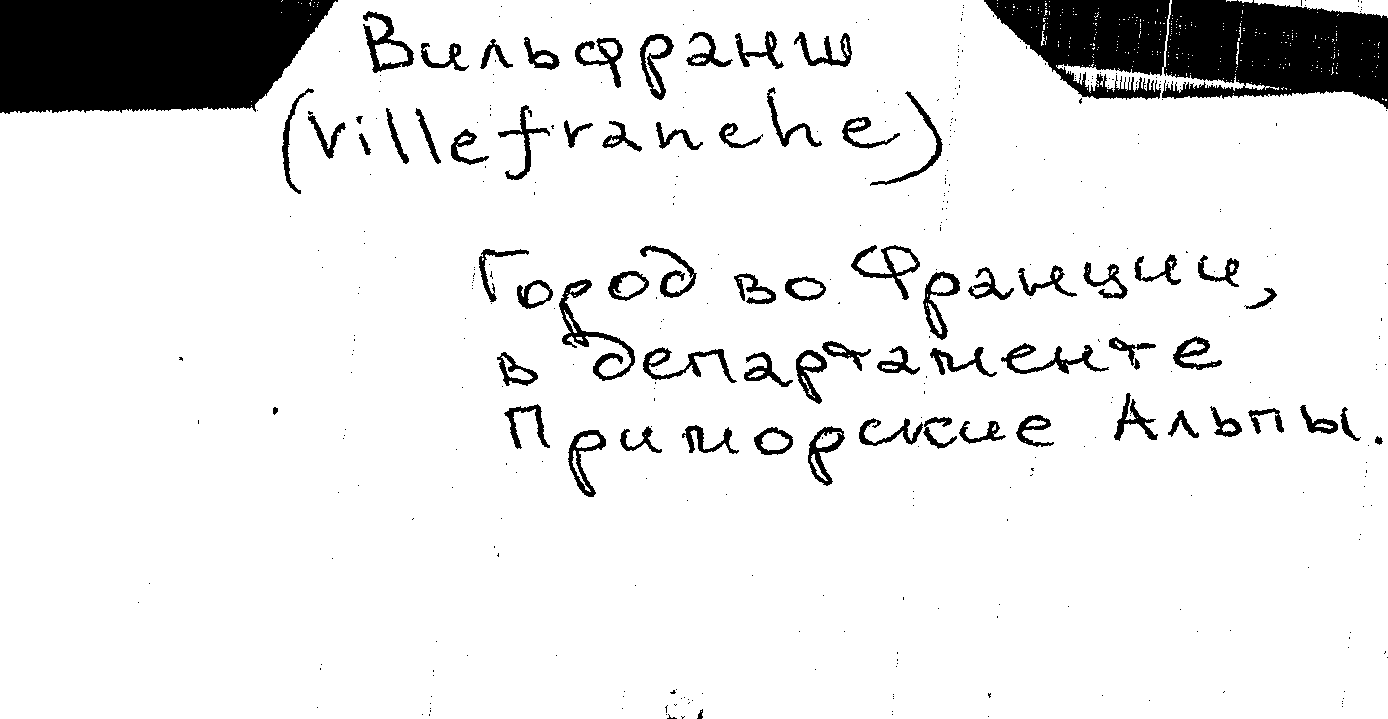 Вильфранш
(Villefranche)
Город во Франции,
в департаменте
Приморские Альпы.